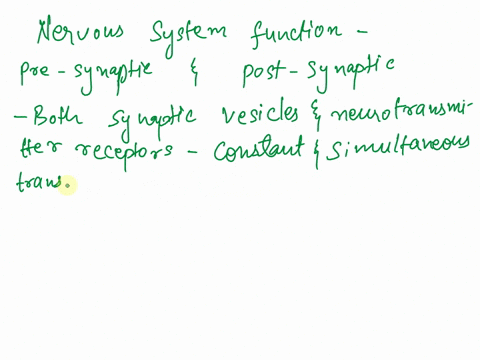 Nervous system function -
pre-synaptic & post-synaptic
- Both synaptic vesicles & neurotransmi-
tter receptors - constant & simultaneous
trans.